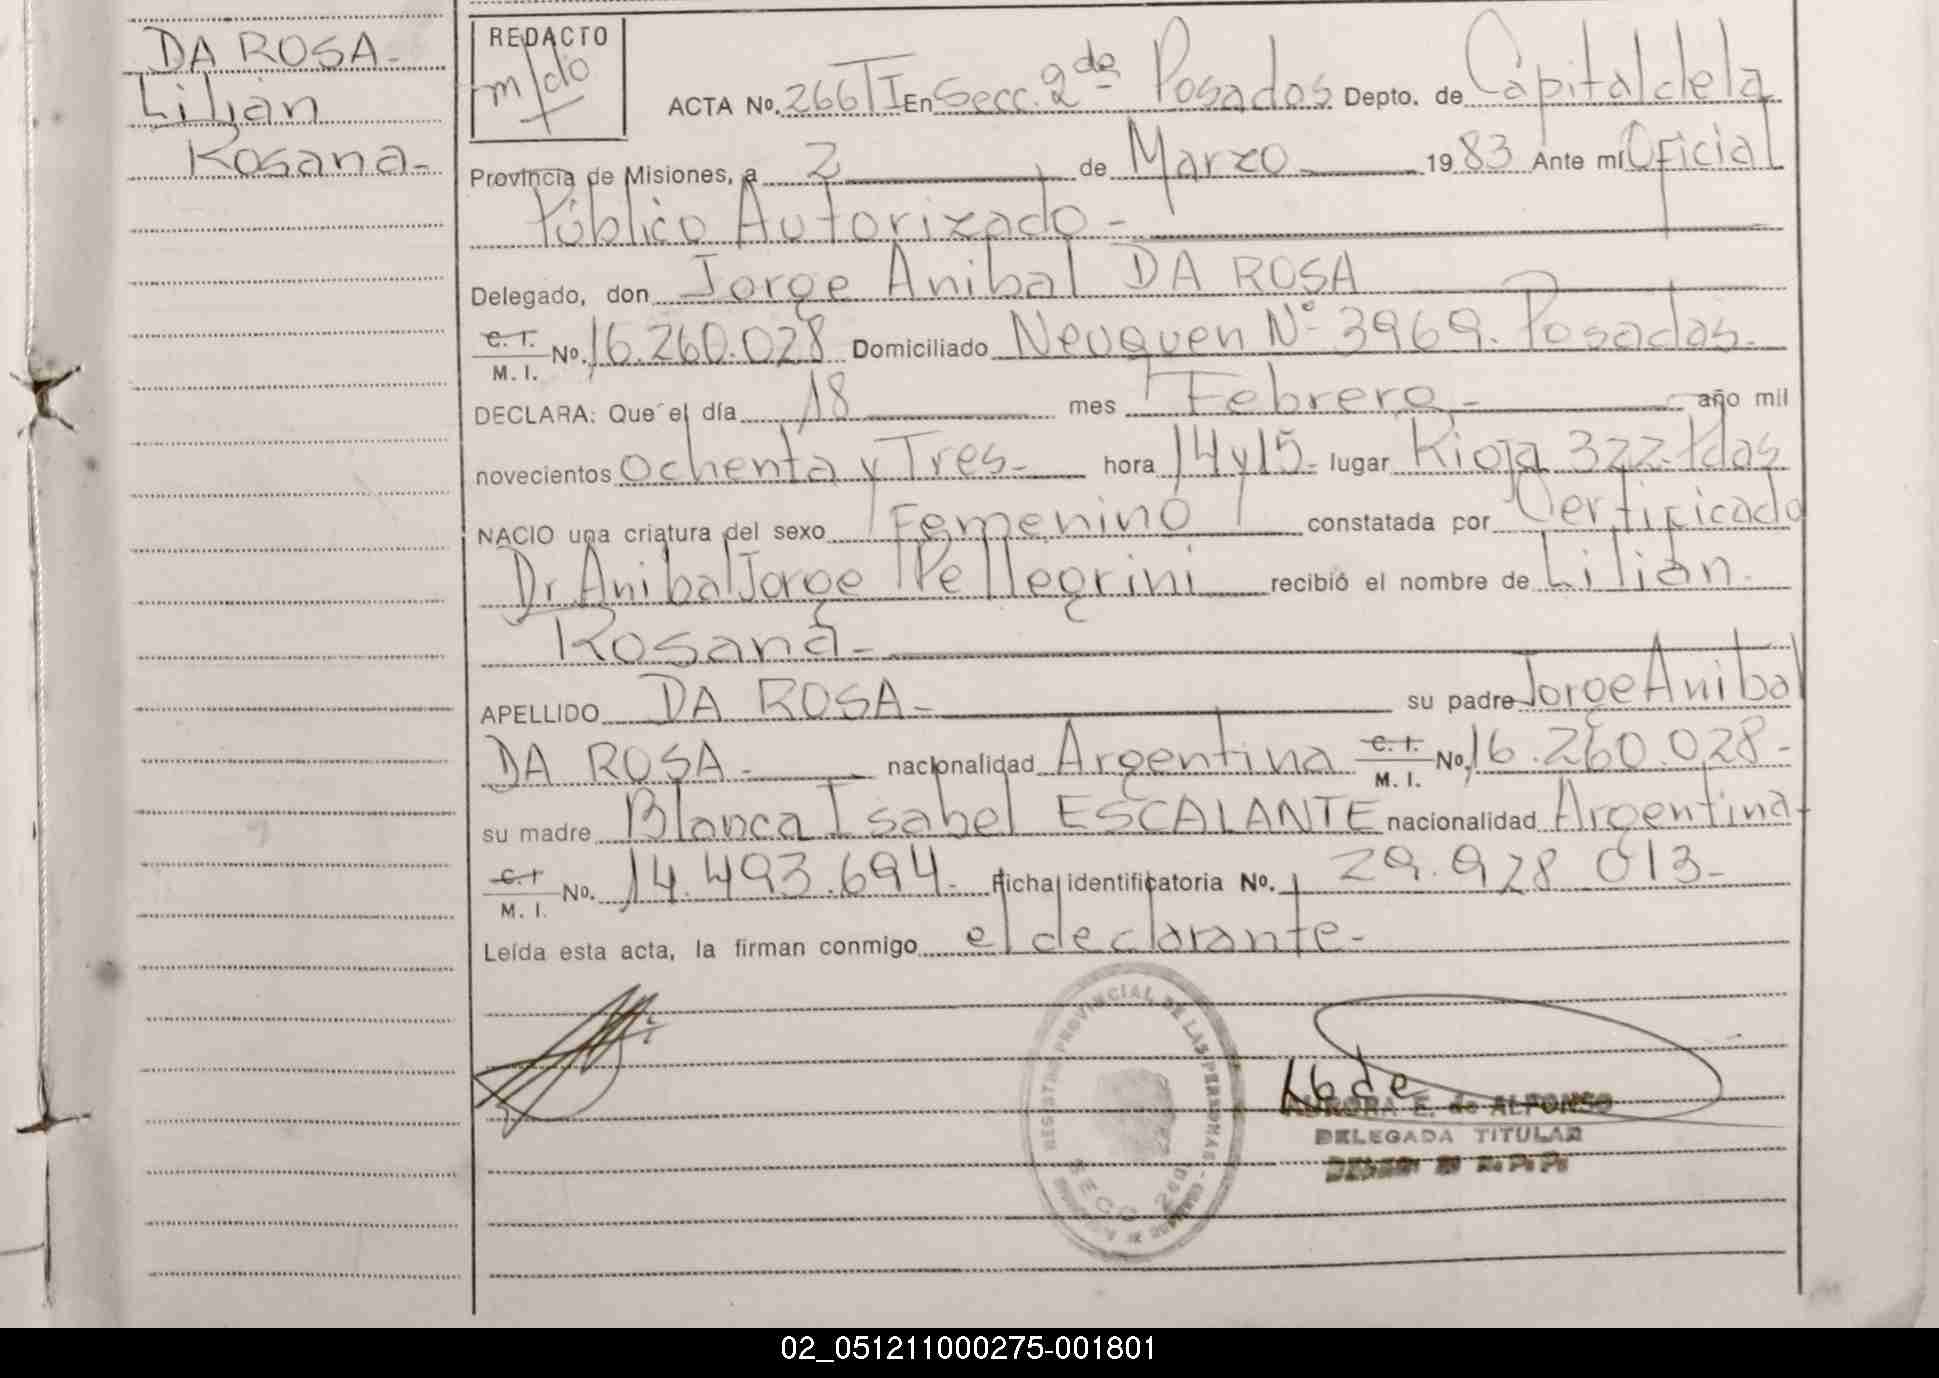 DA ROSA-
Lilian
Rosana-
REDACTO
ACTA No. 266 TI En Secc. 2da Posadas Depto. de Capital de la
Provincia de Misiones, a 2 de Marzo 1983 Ante mí Oficial
Público Autorizado-
Delegado, don Jorge Anibal DA ROSA
C. I.
M. I.
No. 16.260.028 Domiciliado Neuquen Nº 3969. Posadas.
DECLARA: Que el día 18 mes Febrero- año mil
novecientos Ochenta y Tres- hora 14 y 15- lugar Rioja 322- Pdas
NACIO una criatura del sexo Femenino constatada por Certificado
Dr Anibal Jorge Pellegrini recibió el nombre de Lilian
Rosana-
APELLIDO DA ROSA- su padre Jorge Anibal
DA ROSA- nacionalidad Argentina C. I. M. I. No. 16.260.028-
su madre Blanca Isabel ESCALANTE nacionalidad Argentina-
C. I. M. I. No. 14.493.694- Ficha identificatoria No. 29.928 013-
Leída esta acta, la firman conmigo el declarante-
REGISTRO PROVINCIAL DE LAS PERSONAS
SECC. 2da
AURORA E. de ALFONSO
DELEGADA TITULAR
02_051211000275-001801